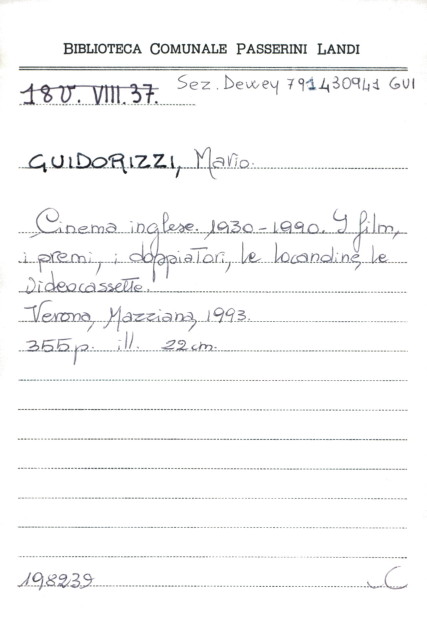 BIBLIOTECA COMUNALE PASSERINI LANDI
18 V. VIII. 37. Sez. Dewey 791430941 GUI
GUIDORIZZI, Mario.
Cinema inglese. 1930-1990. I film,
i premi, i doppiatori, le locandine, le
videocassette.
Verona, Mazziana, 1993.
355 p. ill. 22 cm.
198239 C